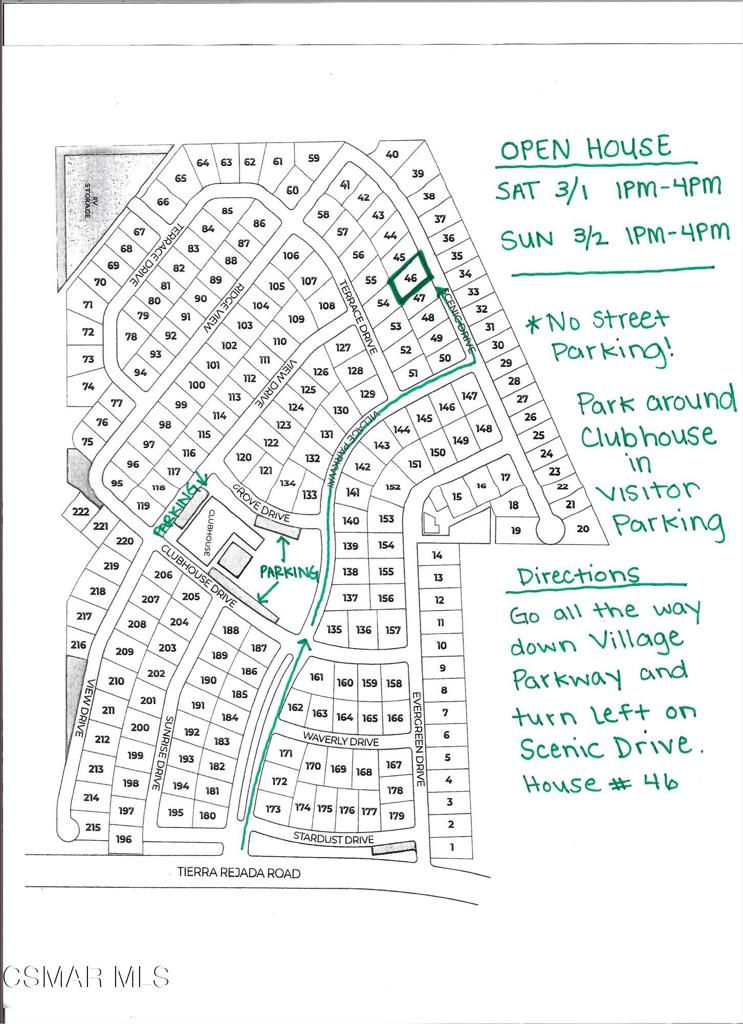 OPEN HOUSE
SAT 3/1 1PM-4PM
SUN 3/2 1PM-4PM
*No Street
Parking!
Park around
Clubhouse
in
Visitor
Parking
Directions
Go all the way
down Village
Parkway and
turn Left on
Scenic Drive.
House # 46
RV
STORAGE
TERRACE DRIVE
RIDGE VIEW
VIEW DRIVE
TERRACE DRIVE
SCENIC DRIVE
VILLAGE PARKWAY
GROVE DRIVE
PARKING
CLUBHOUSE
PARKING
CLUBHOUSE DRIVE
VIEW DRIVE
SUNRISE DRIVE
EVERGREEN DRIVE
WAVERLY DRIVE
STARDUST DRIVE
TIERRA REJADA ROAD
1
2
3
4
5
6
7
8
9
10
11
12
13
14
15
16
17
18
19
20
21
22
23
24
25
26
27
28
29
30
31
32
33
34
35
36
37
38
39
40
41
42
43
44
45
46
47
48
49
50
51
52
53
54
55
56
57
58
59
60
61
62
63
64
65
66
67
68
69
70
71
72
73
74
75
76
77
78
79
80
81
82
83
84
85
86
87
88
89
90
91
92
93
94
95
96
97
98
99
100
101
102
103
104
105
106
107
108
109
110
111
112
113
114
115
116
117
118
119
120
121
122
123
124
125
126
127
128
129
130
131
132
133
134
135
136
137
138
139
140
141
142
143
144
145
146
147
148
149
150
151
152
153
154
155
156
157
158
159
160
161
162
163
164
165
166
167
168
169
170
171
172
173
174
175
176
177
178
179
180
181
182
183
184
185
186
187
188
189
190
191
192
193
194
195
196
197
198
199
200
201
202
203
204
205
206
207
208
209
210
211
212
213
214
215
216
217
218
219
220
221
222
CSMAR MLS